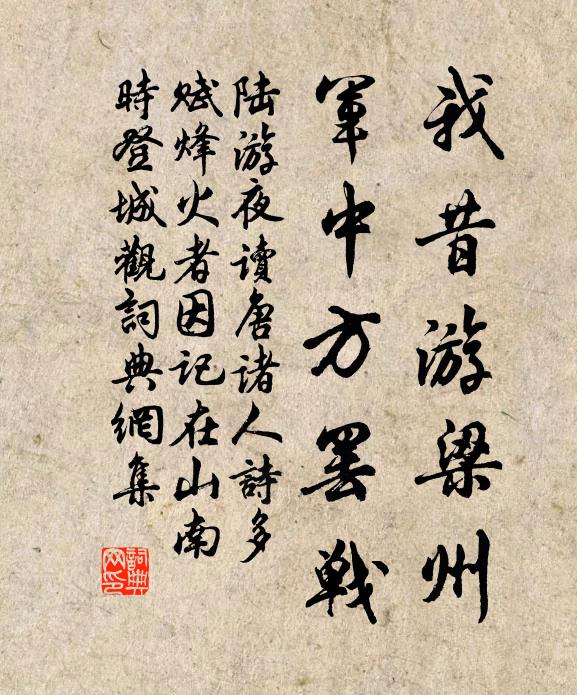 我昔游梁州
軍中方罢戦
陆游夜讀唐诸人詩多
赋烽火者因记在山南
時登城觀詞典網集
詞典网印